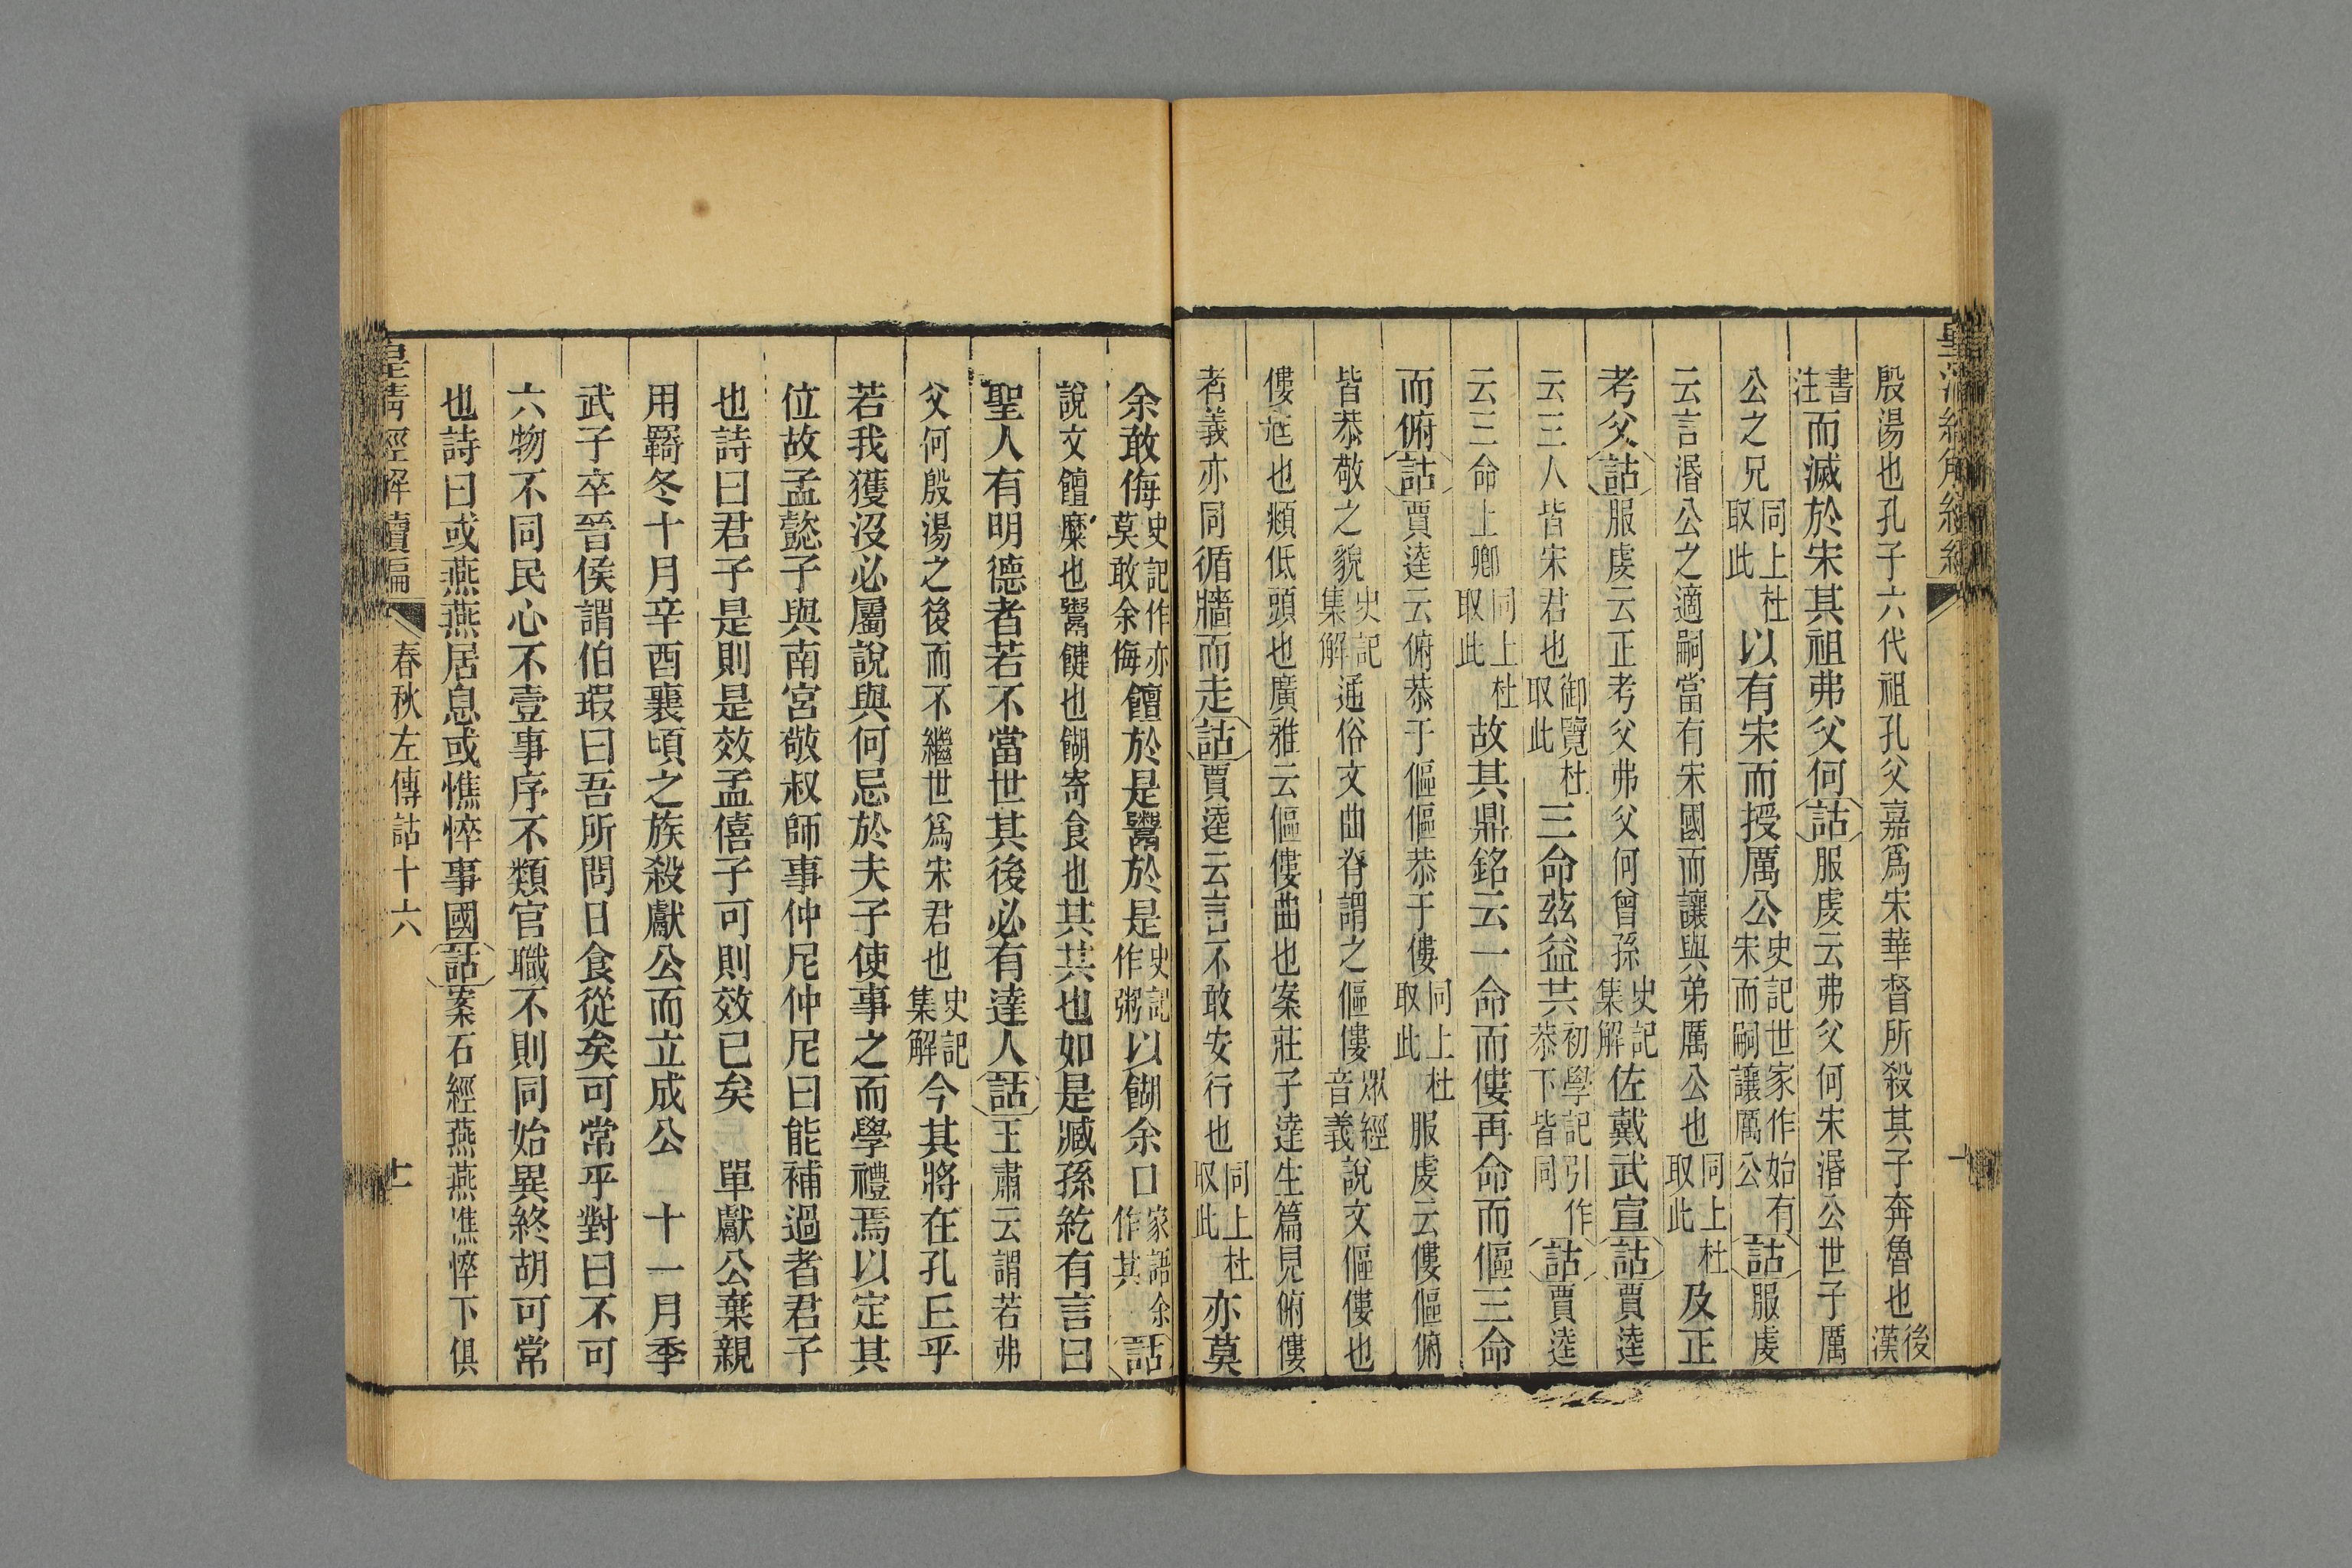 殷湯也孔子六代祖孔父嘉爲宋華督所殺其子奔魯也後漢
書注而滅於宋其祖弗父何詁服虔云弗父何宋湣公世子厲
公之兄同上杜取此以有宋而授厲公史記世家作始有宋而嗣讓厲公詁服虔
云言湣公之適嗣當有宋國而讓與弟厲公也同上杜取此及正
考父詁服虔云正考父弗父何曾孫史記集解佐戴武宣詁賈逵
云三人皆宋君也御覽杜取此三命茲益共初學記引作恭下皆同詁賈逵
云三命上卿同上杜取此故其鼎銘云一命而僂再命而傴三命
而俯詁賈逵云俯恭于傴傴恭于僂同上杜取此服虔云僂傴俯
皆恭敬之貌史記集解通俗文曲脊謂之傴僂眾經音義說文傴僂也
僂尪也頫低頭也廣雅云傴僂曲也案莊子達生篇見俯僂
者義亦同循牆而走詁賈逵云言不敢安行也同上杜取此亦莫
余敢侮史記作亦莫敢余侮饘於是鬻於是史記作粥以餬余口家語余作其詁
說文饘糜也鬻䭈也餬寄食也其共也如是臧孫紇有言曰
聖人有明德者若不當世其後必有達人詁王肅云謂若弗
父何殷湯之後而不繼世爲宋君也史記集解今其將在孔丘乎
若我獲沒必屬說與何忌於夫子使事之而學禮焉以定其
位故孟懿子與南宮敬叔師事仲尼仲尼曰能補過者君子
也詩曰君子是則是效孟僖子可則效已矣　單獻公棄親
用羇冬十月辛酉襄頃之族殺獻公而立成公　十一月季
武子卒晉侯謂伯瑕曰吾所問日食從矣可常乎對曰不可
六物不同民心不壹事序不類官職不則同始異終胡可常
也詩曰或燕燕居息或憔悴事國詁案石經燕燕憔悴下俱
皇清經解續編　春秋左傳詁十六　十一